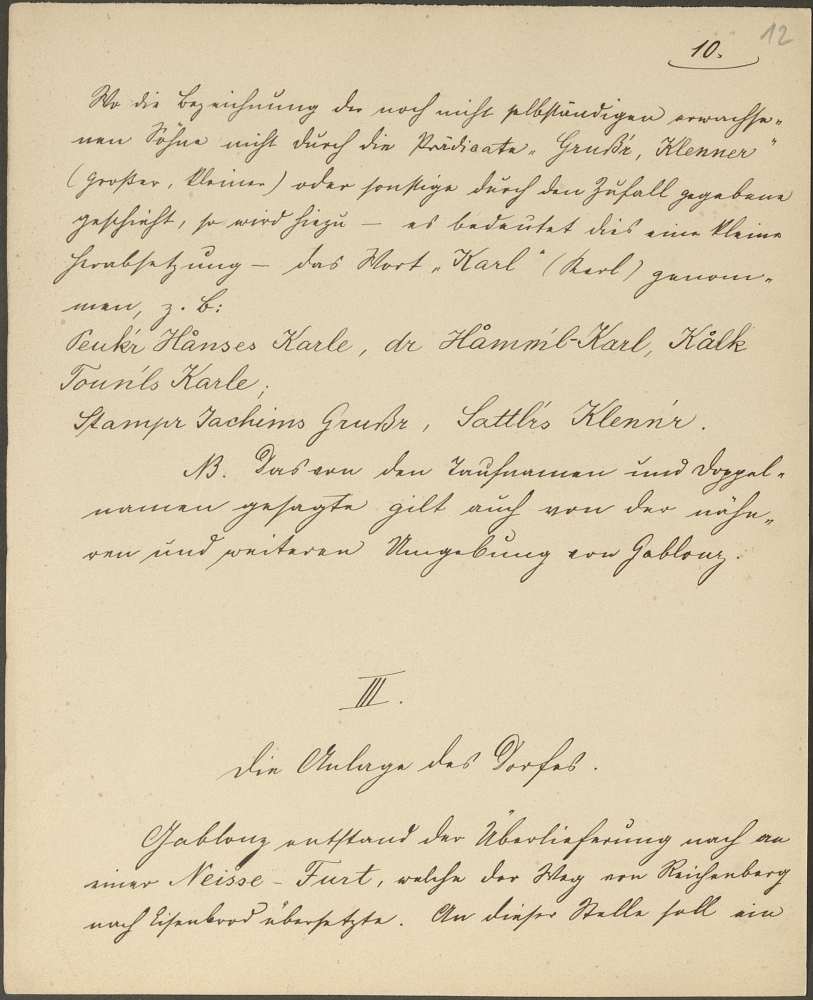 12
10.
Wo die Bezeichnung der noch nicht selbständigen erwachse-
nen Söhne nicht durch die Prädicate „Grußr, Klenner"
(großer, kleiner) oder sonstige durch den Zufall gegebene
geschieht, so wird hiezu — es bedeutet dies eine kleine
Herabsetzung — das Wort „Karl" (Kerl) genom-
men, z. B:
Peukr Hånses Karle, dr Håmml-Karl, Kålk
Tounls Karle;
Stampr Jachims Grußr, Sattlrs Klennr.
NB. Das von den Taufnamen und Doppel-
namen gesagte gilt auch von der nähe-
ren und weiteren Umgebung von Gablonz.
III.
Die Anlage des Dorfes.
Gablonz entstand der Überlieferung nach an
einer Neisse-Furt, welche der Weg von Reichenberg
nach Eisenbrod übersetzte. An dieser Stelle soll ein